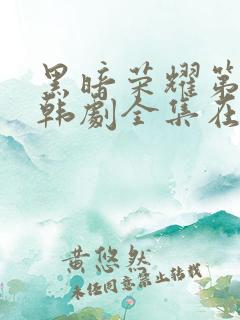 黑暗荣耀第
韩剧全集在
黄悠然
未经同意禁止转载